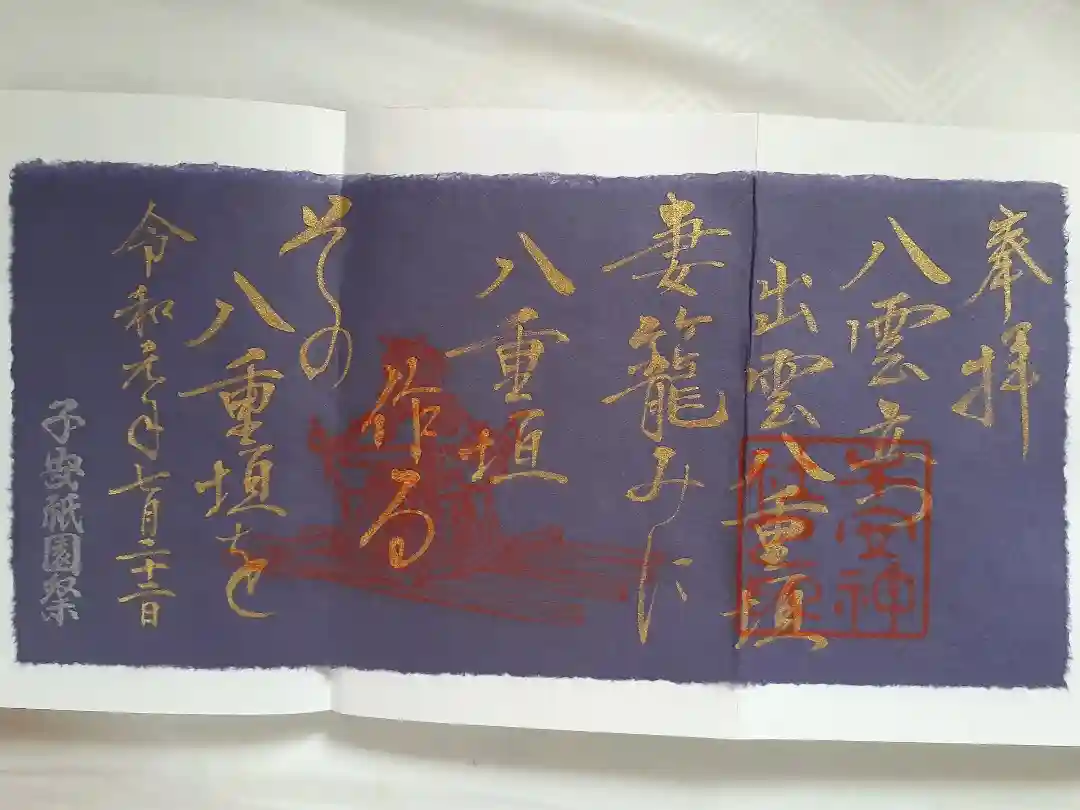 奉拝
八雲立つ
出雲八重垣
妻籠みに
八重垣
作る
その
八重垣を
令和元年七月二十二日
祇園祭